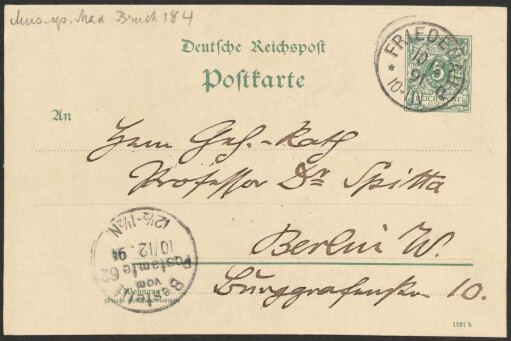 Mus. ep. Max Bruch 184
Deutsche Reichspost
Postkarte
FRIEDENAU
10 12
91
10-11V
5
REICHSPOST
An
Herrn Geh.-Rath
Professor Dr Spitta
Berlin W.
Burggrafenstr. 10.
Berlin
vom
Postamte 62
10/12.91
12½-1½N
Wohnung
1191 b